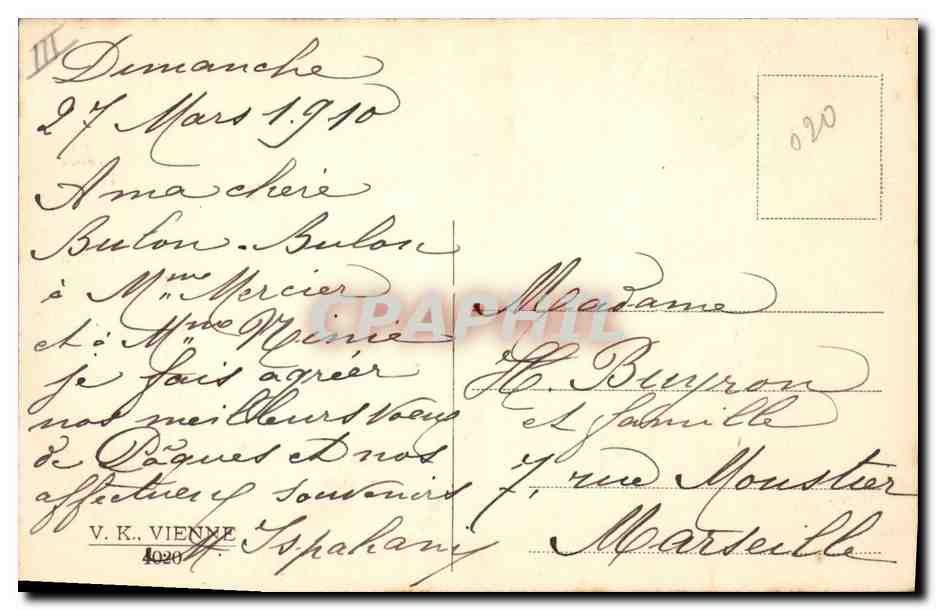 III
Dimanche
27 Mars 1910
A ma chère
Buton-Bulon
à Mme Mercier
et à Mme Ninie
je fais agréer
nos meilleurs voeux
de Pâques et nos
affectueux souvenirs
H. Ispahany
V. K., VIENNE
4020
020
Madame
H. Buyron
et famille
7, rue Moustier
Marseille
CPAPHIL